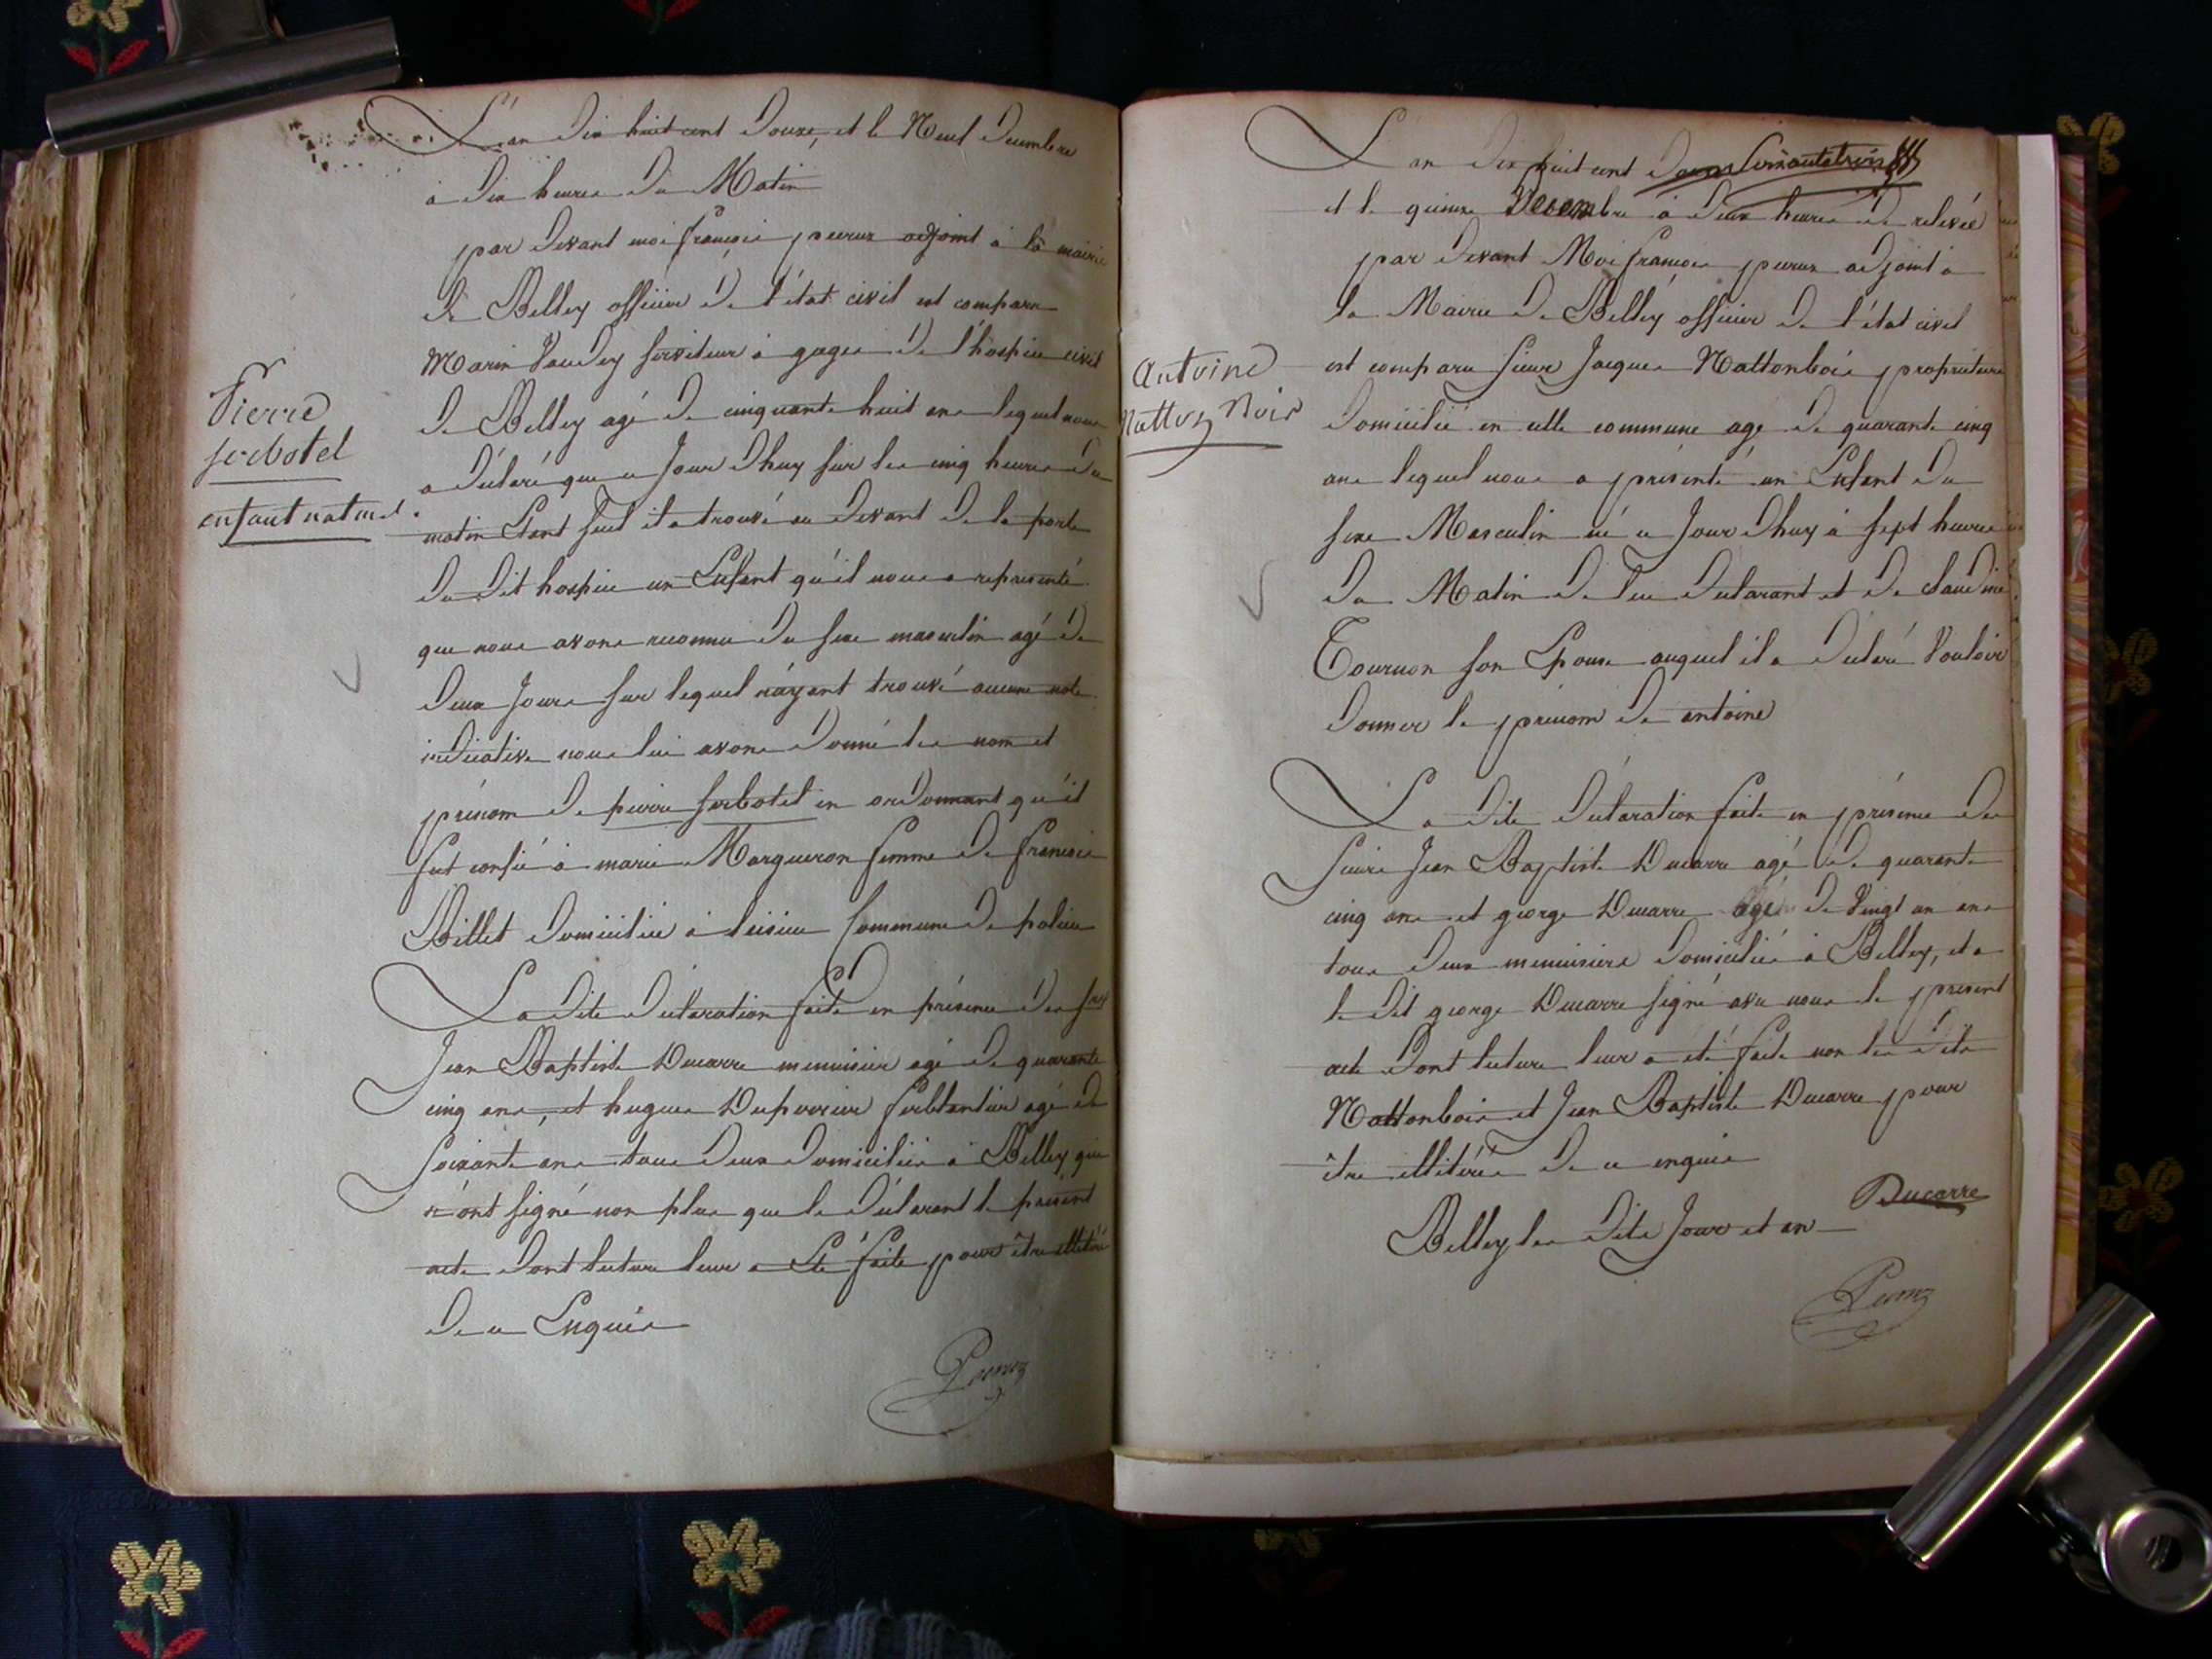 L'an dix huit cent douze, et le Neuf decembre
à dix heures du Matin
par devant moi françois peuruz adjoint à la mairie
de Belley officier de l'état civil est comparu
Marin Vaudey serviteur à gages de l'hospice civil
de Belley agé de cinquante huit ans lequel nous
a déclaré que ce jour d'huy sur les cinq heures du
matin Etant seul il a trouvé au devant de la porte
du dit hospice un Enfant qu'il nous a representé
que nous avons reconnu du sexe masculin agé de
deux jours sur lequel n'ayant trouvé aucune note
indicative nous lui avons donné les nom et
prénom de pierre serbotel en ordonnant qu'il
fut confié à marie Margueron femme de françois
Billet domiciliée à Commune de
La dite déclaration faite en présence des srs
Jean Baptiste Ducarre menuisier agé de quarante
cinq ans, et hugues Duperrier ferblantier agé de
soixante ans tous deux domiciliés à Belley qui
n'ont signé non plus que le déclarant le présent
acte dont lecture leur a été faite pour être illitérés
de ce Enquis
Pierre
serbotel
enfant naturel
L'an dix huit cent douze
et le quinze Decembre à deux heures de relevée
par devant Moi françois peuruz adjoint à
la Mairie de Belley officier de l'état civil
est comparu sieur Jacques Nattonbois propriétaire
domicilié en cette commune agé de quarante cinq
ans lequel nous a présenté un Enfant du
sexe Masculin né ce jour d'huy à sept heures
du Matin de lui déclarant et de claudine
Tournon son Epouse auquel il a déclaré Vouloir
donner le prénom de antoine
La dite déclaration faite en présence des
sieurs Jean Baptiste Ducarre agé de quarante
cinq ans et george Ducarre agé de Vingt un ans
tous deux menuisiers domiciliés à Belley, et a
le dit george Ducarre signé avec nous le present
acte dont lecture leur a été faite non les dits
Nattonbois et Jean Baptiste Ducarre pour
être illitérés de ce enquis
Belley les dits Jour et an
Ducarre
Antoine